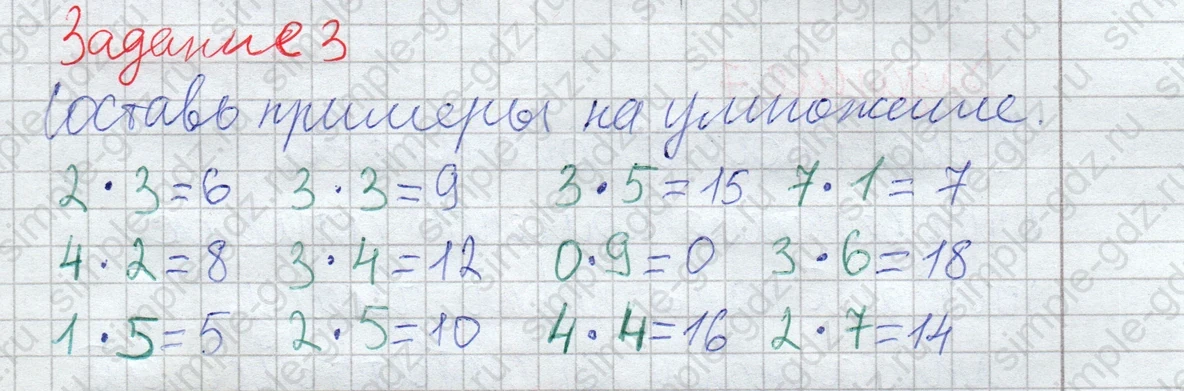 Задание 3
Составь примеры на умножение.
2 · 3 = 6 3 · 3 = 9 3 · 5 = 15 7 · 1 = 7
4 · 2 = 8 3 · 4 = 12 0 · 9 = 0 3 · 6 = 18
1 · 5 = 5 2 · 5 = 10 4 · 4 = 16 2 · 7 = 14
simple-gdz.ru